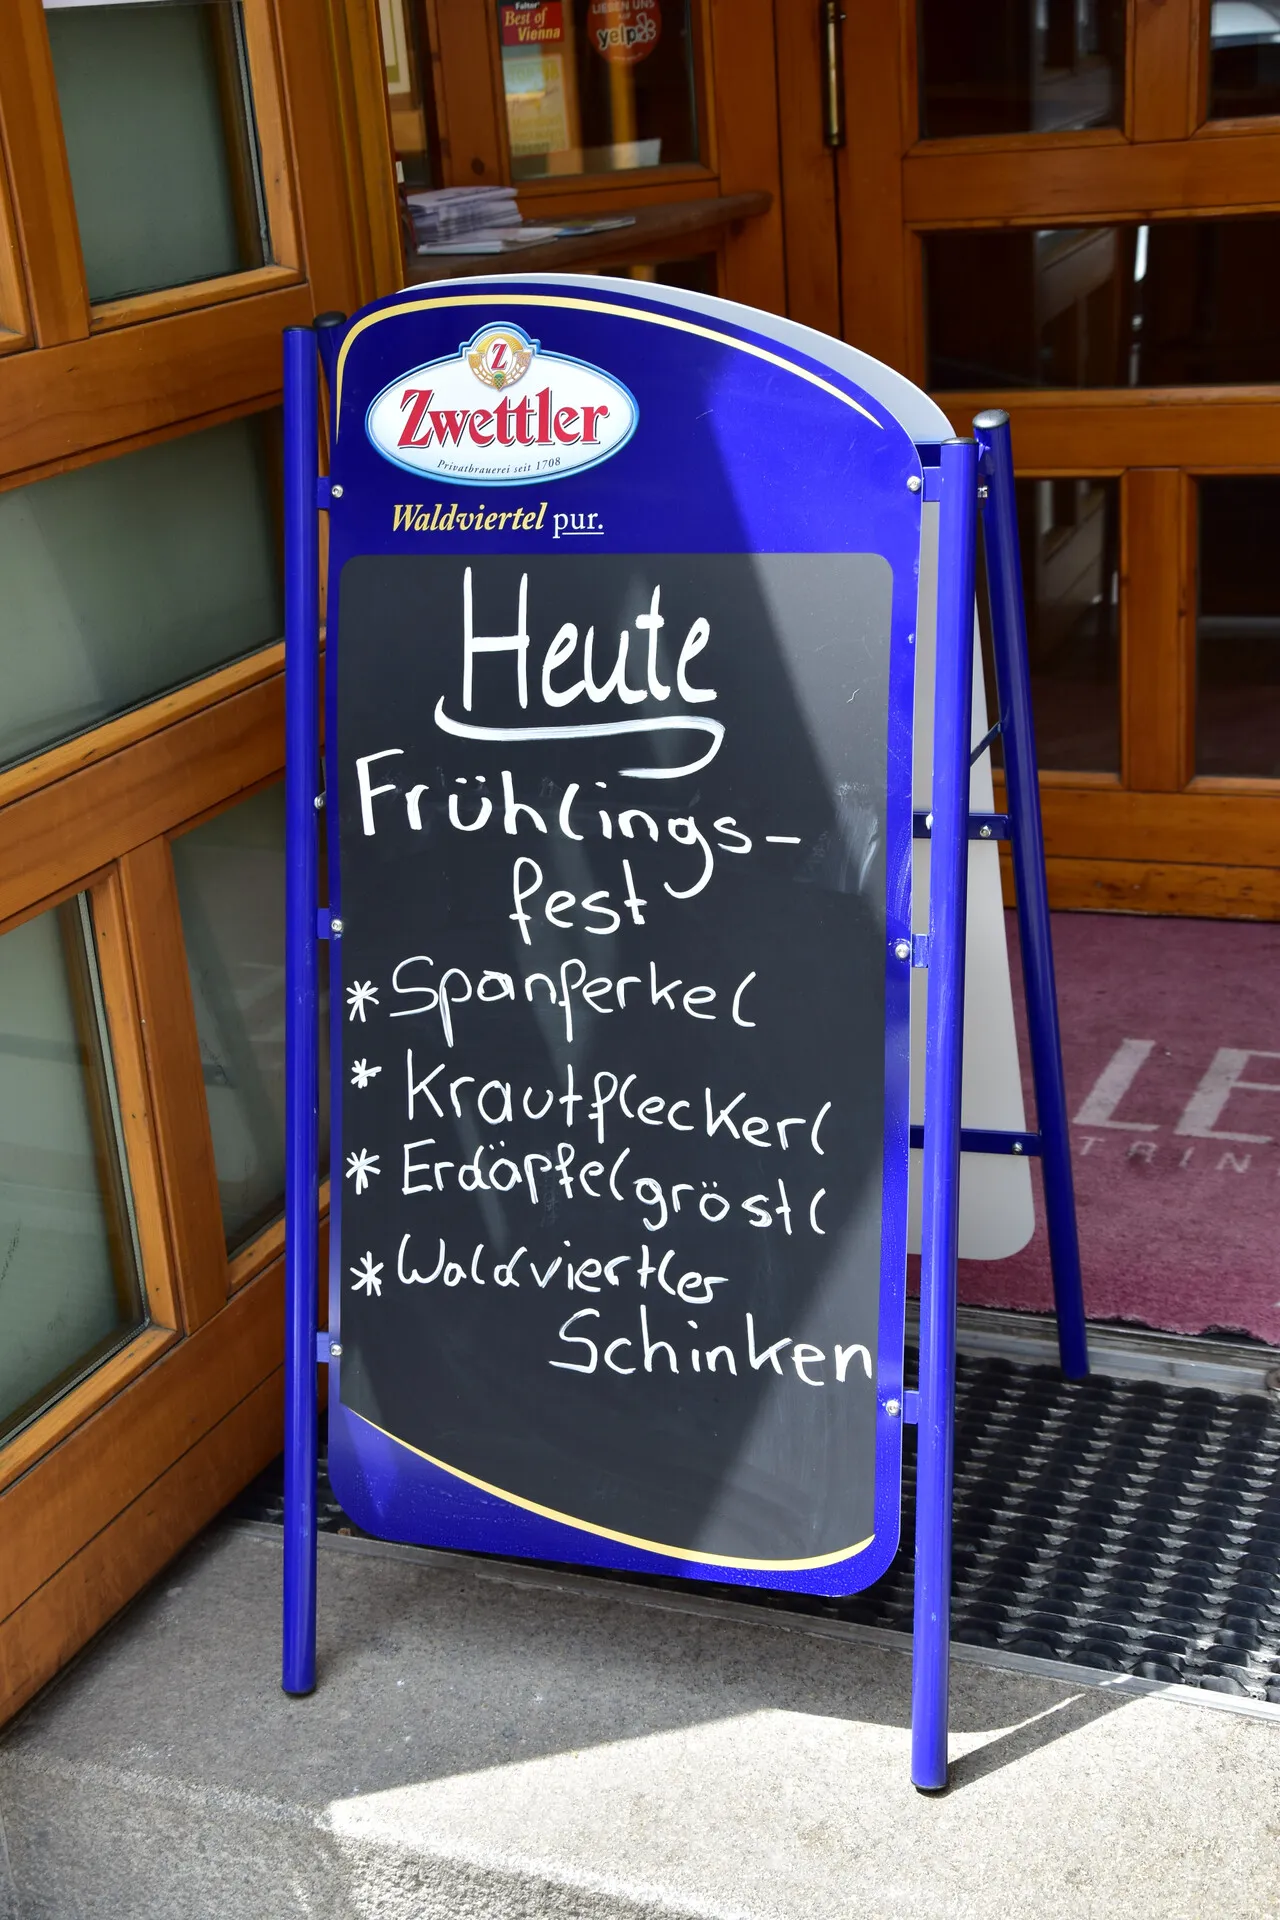 Falter
Best of
Vienna
LIEBEN UNS
yelp
Z
Zwettler
Privatbrauerei seit 1708
Waldviertel pur.
Heute
Frühlings-
fest
* Spanferkel
* Krautfleckerl
* Erdäpfelgröstl
* Waldviertler
Schinken
LE
TRIN